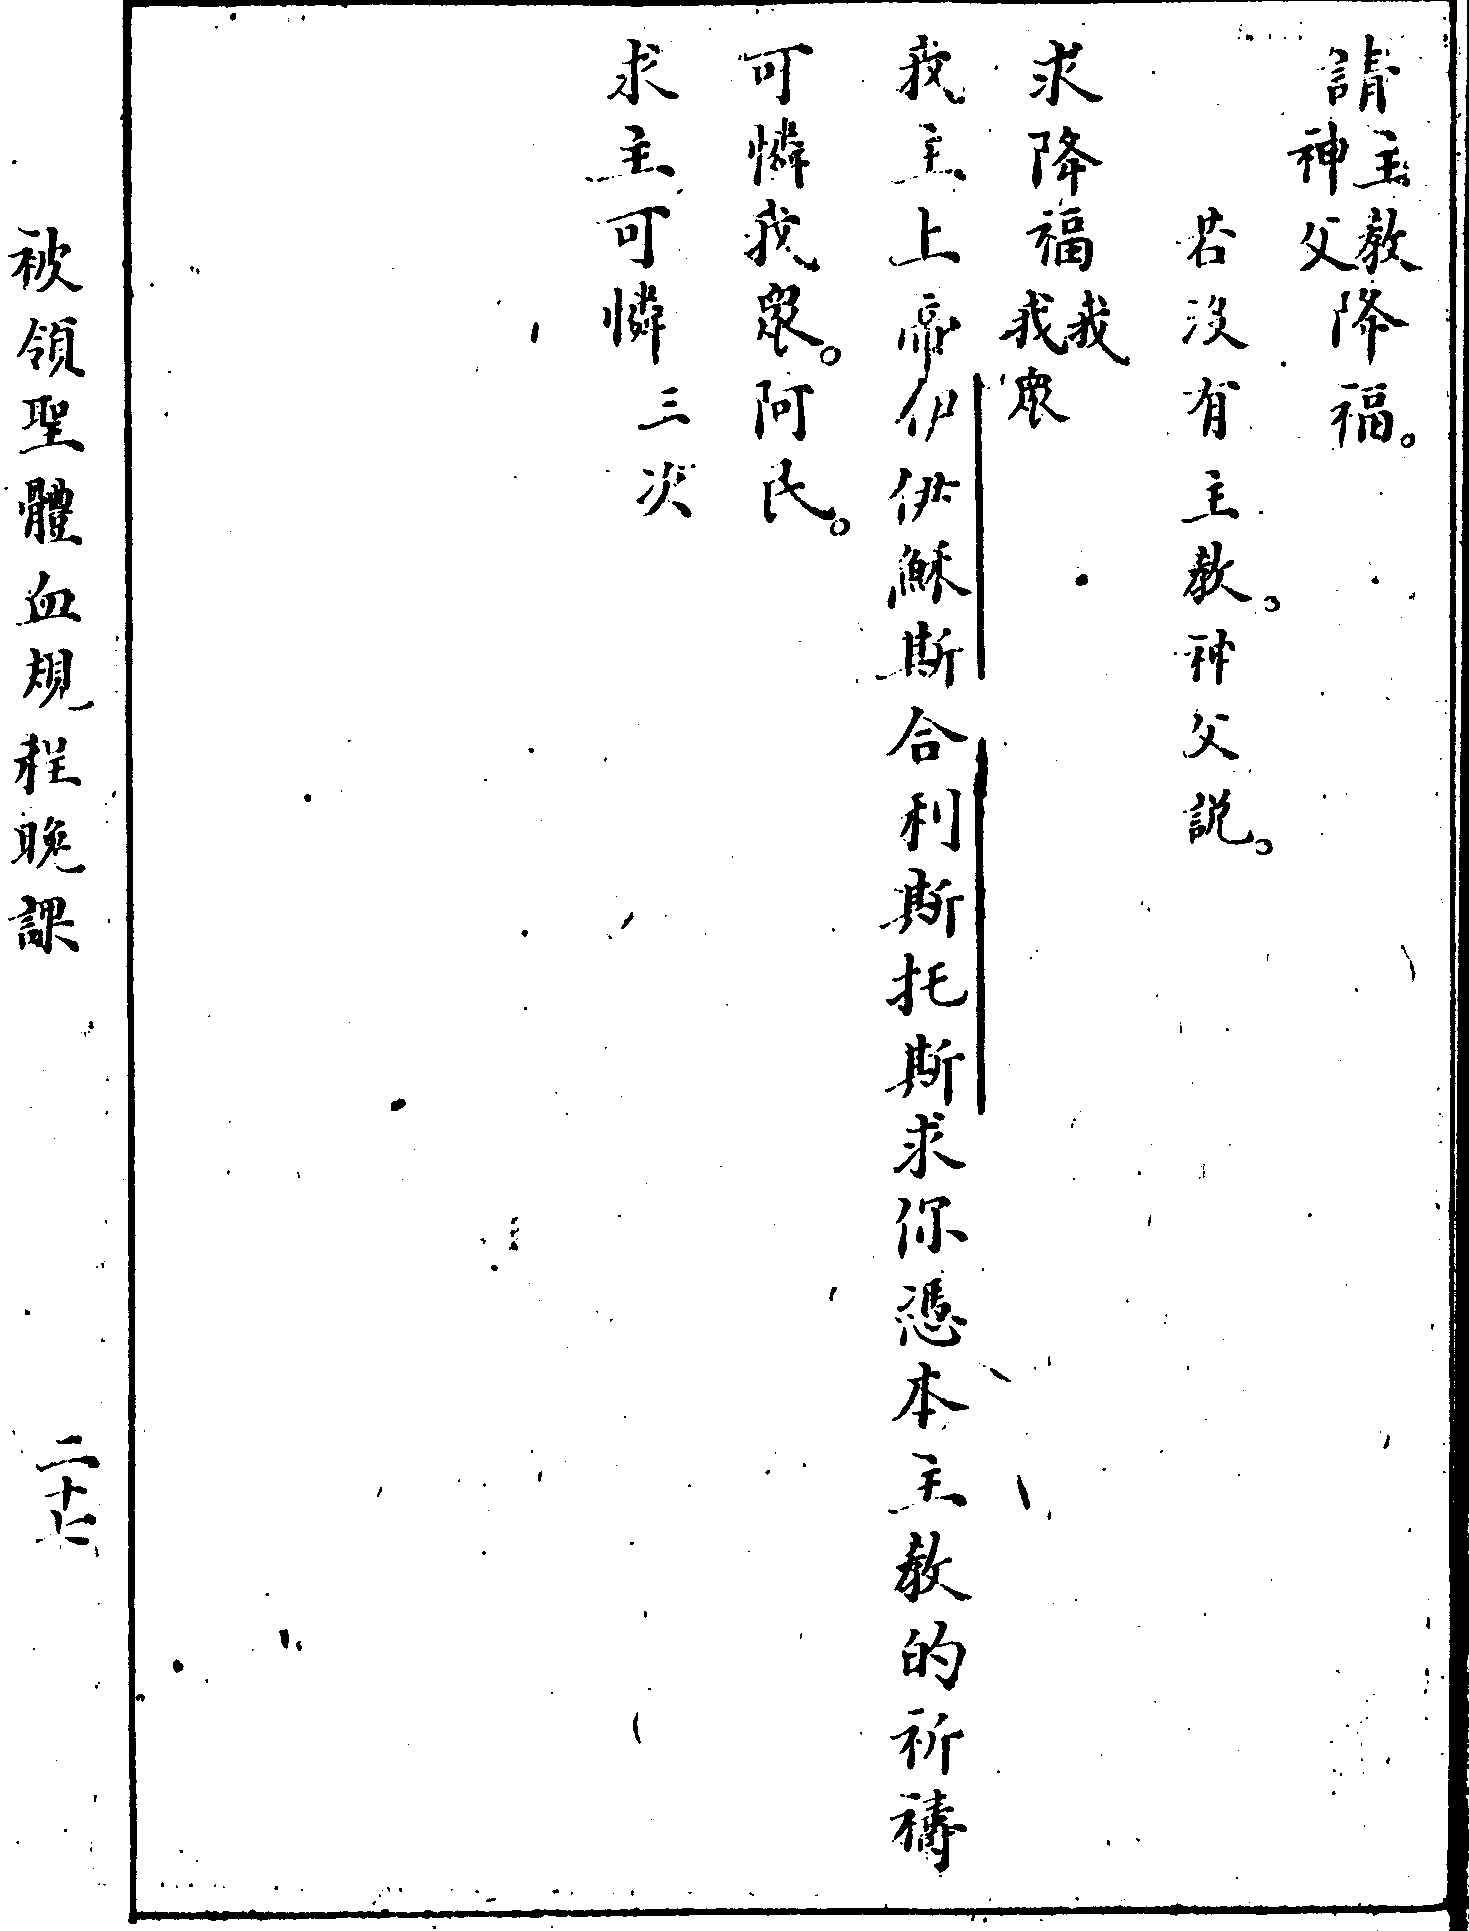 請主教神父降福。
若沒有主教。神父説。
求降福我我眾
我主上帝伊伊穌斯合利斯托斯求你憑本主教的祈禱
可憐我眾。阿民。
求主可憐三次
被領聖體血規程晚課
二十七